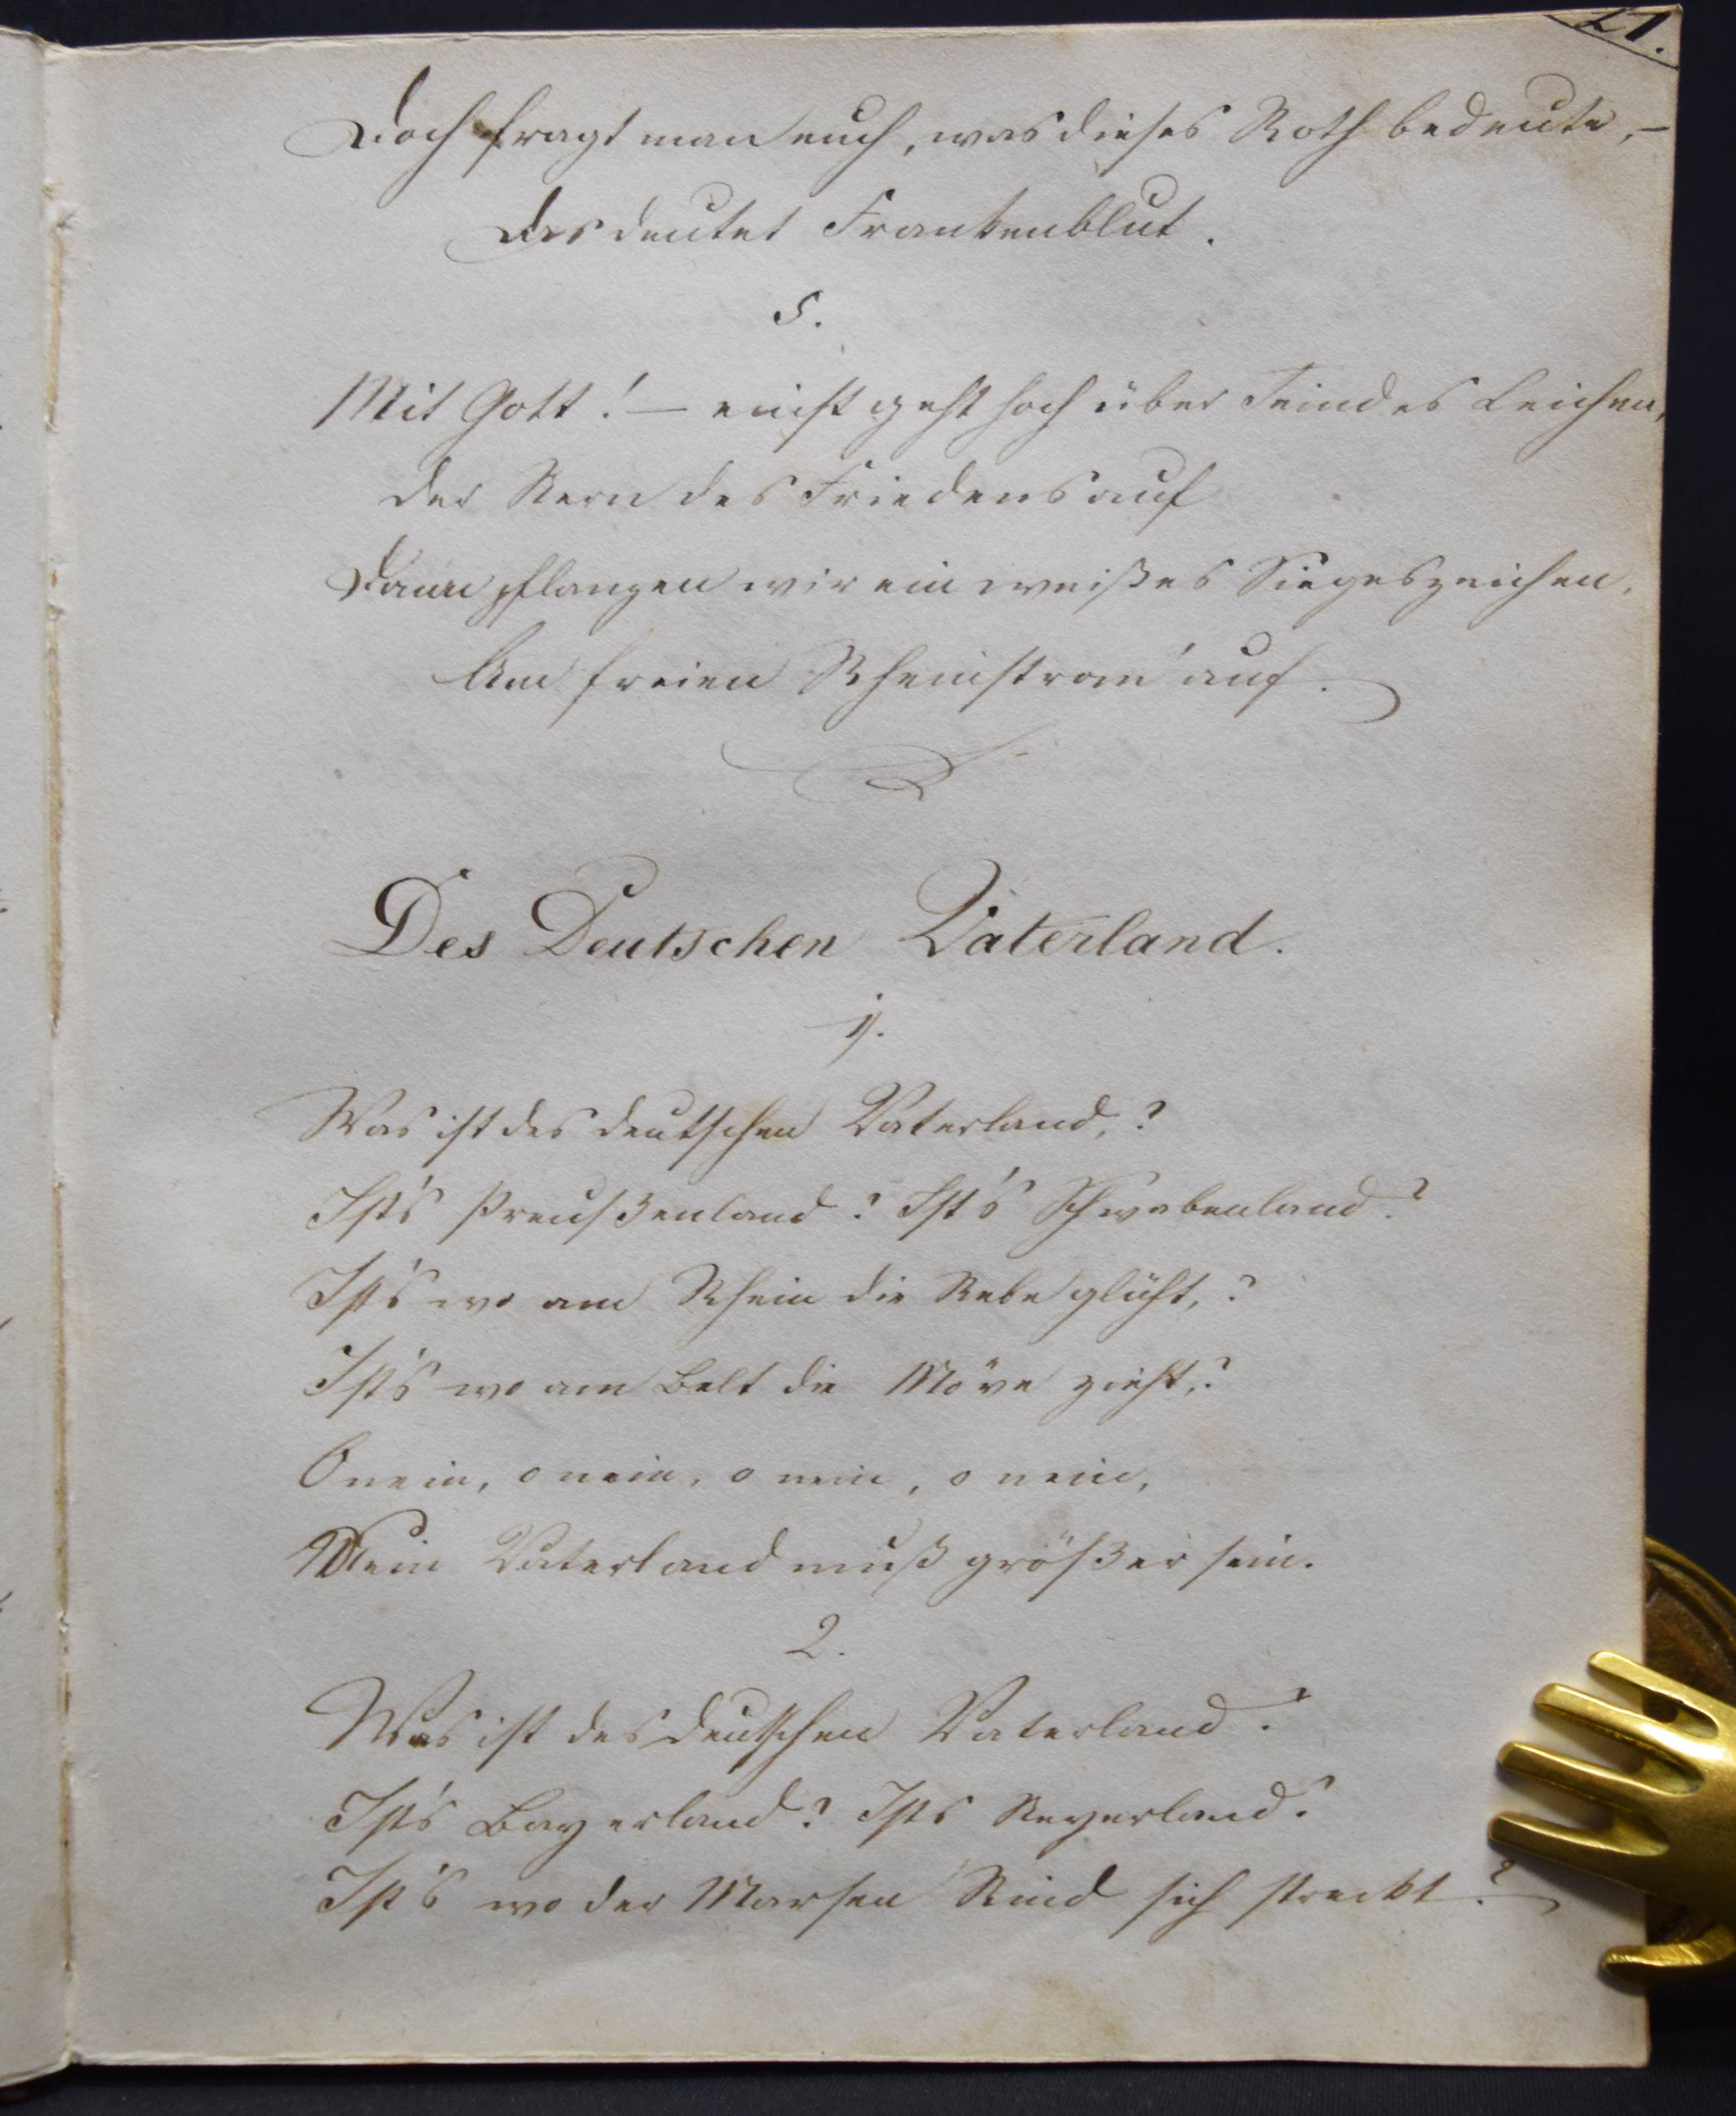 21.
Doch fragt man euch, was dieses Roth bedeute, –
Das deutet Frankenblut.
5.
Mit Gott! – einst geht hoch über Feindes Leichen,
der Stern des Friedens auf
Dann pflanzen wir ein weißes Siegeszeichen,
Am freien Rheinstrom auf.
Des Deutschen Vaterland.
1.
Was ist des deutschen Vaterland,?
Ist's Preußenland? Ist's Schwabenland?
Ist's wo am Rhein die Rebe glüht,?
Ist's wo am Belt die Möve zieht,?
O nein, o nein, o nein, o nein,
Mein Vaterland muß größer sein.
2.
Was ist des deutschen Vaterland?
Ist's Bayerland? Ists Steyerland?
Ist's wo der Marsen Rind sich streckt?